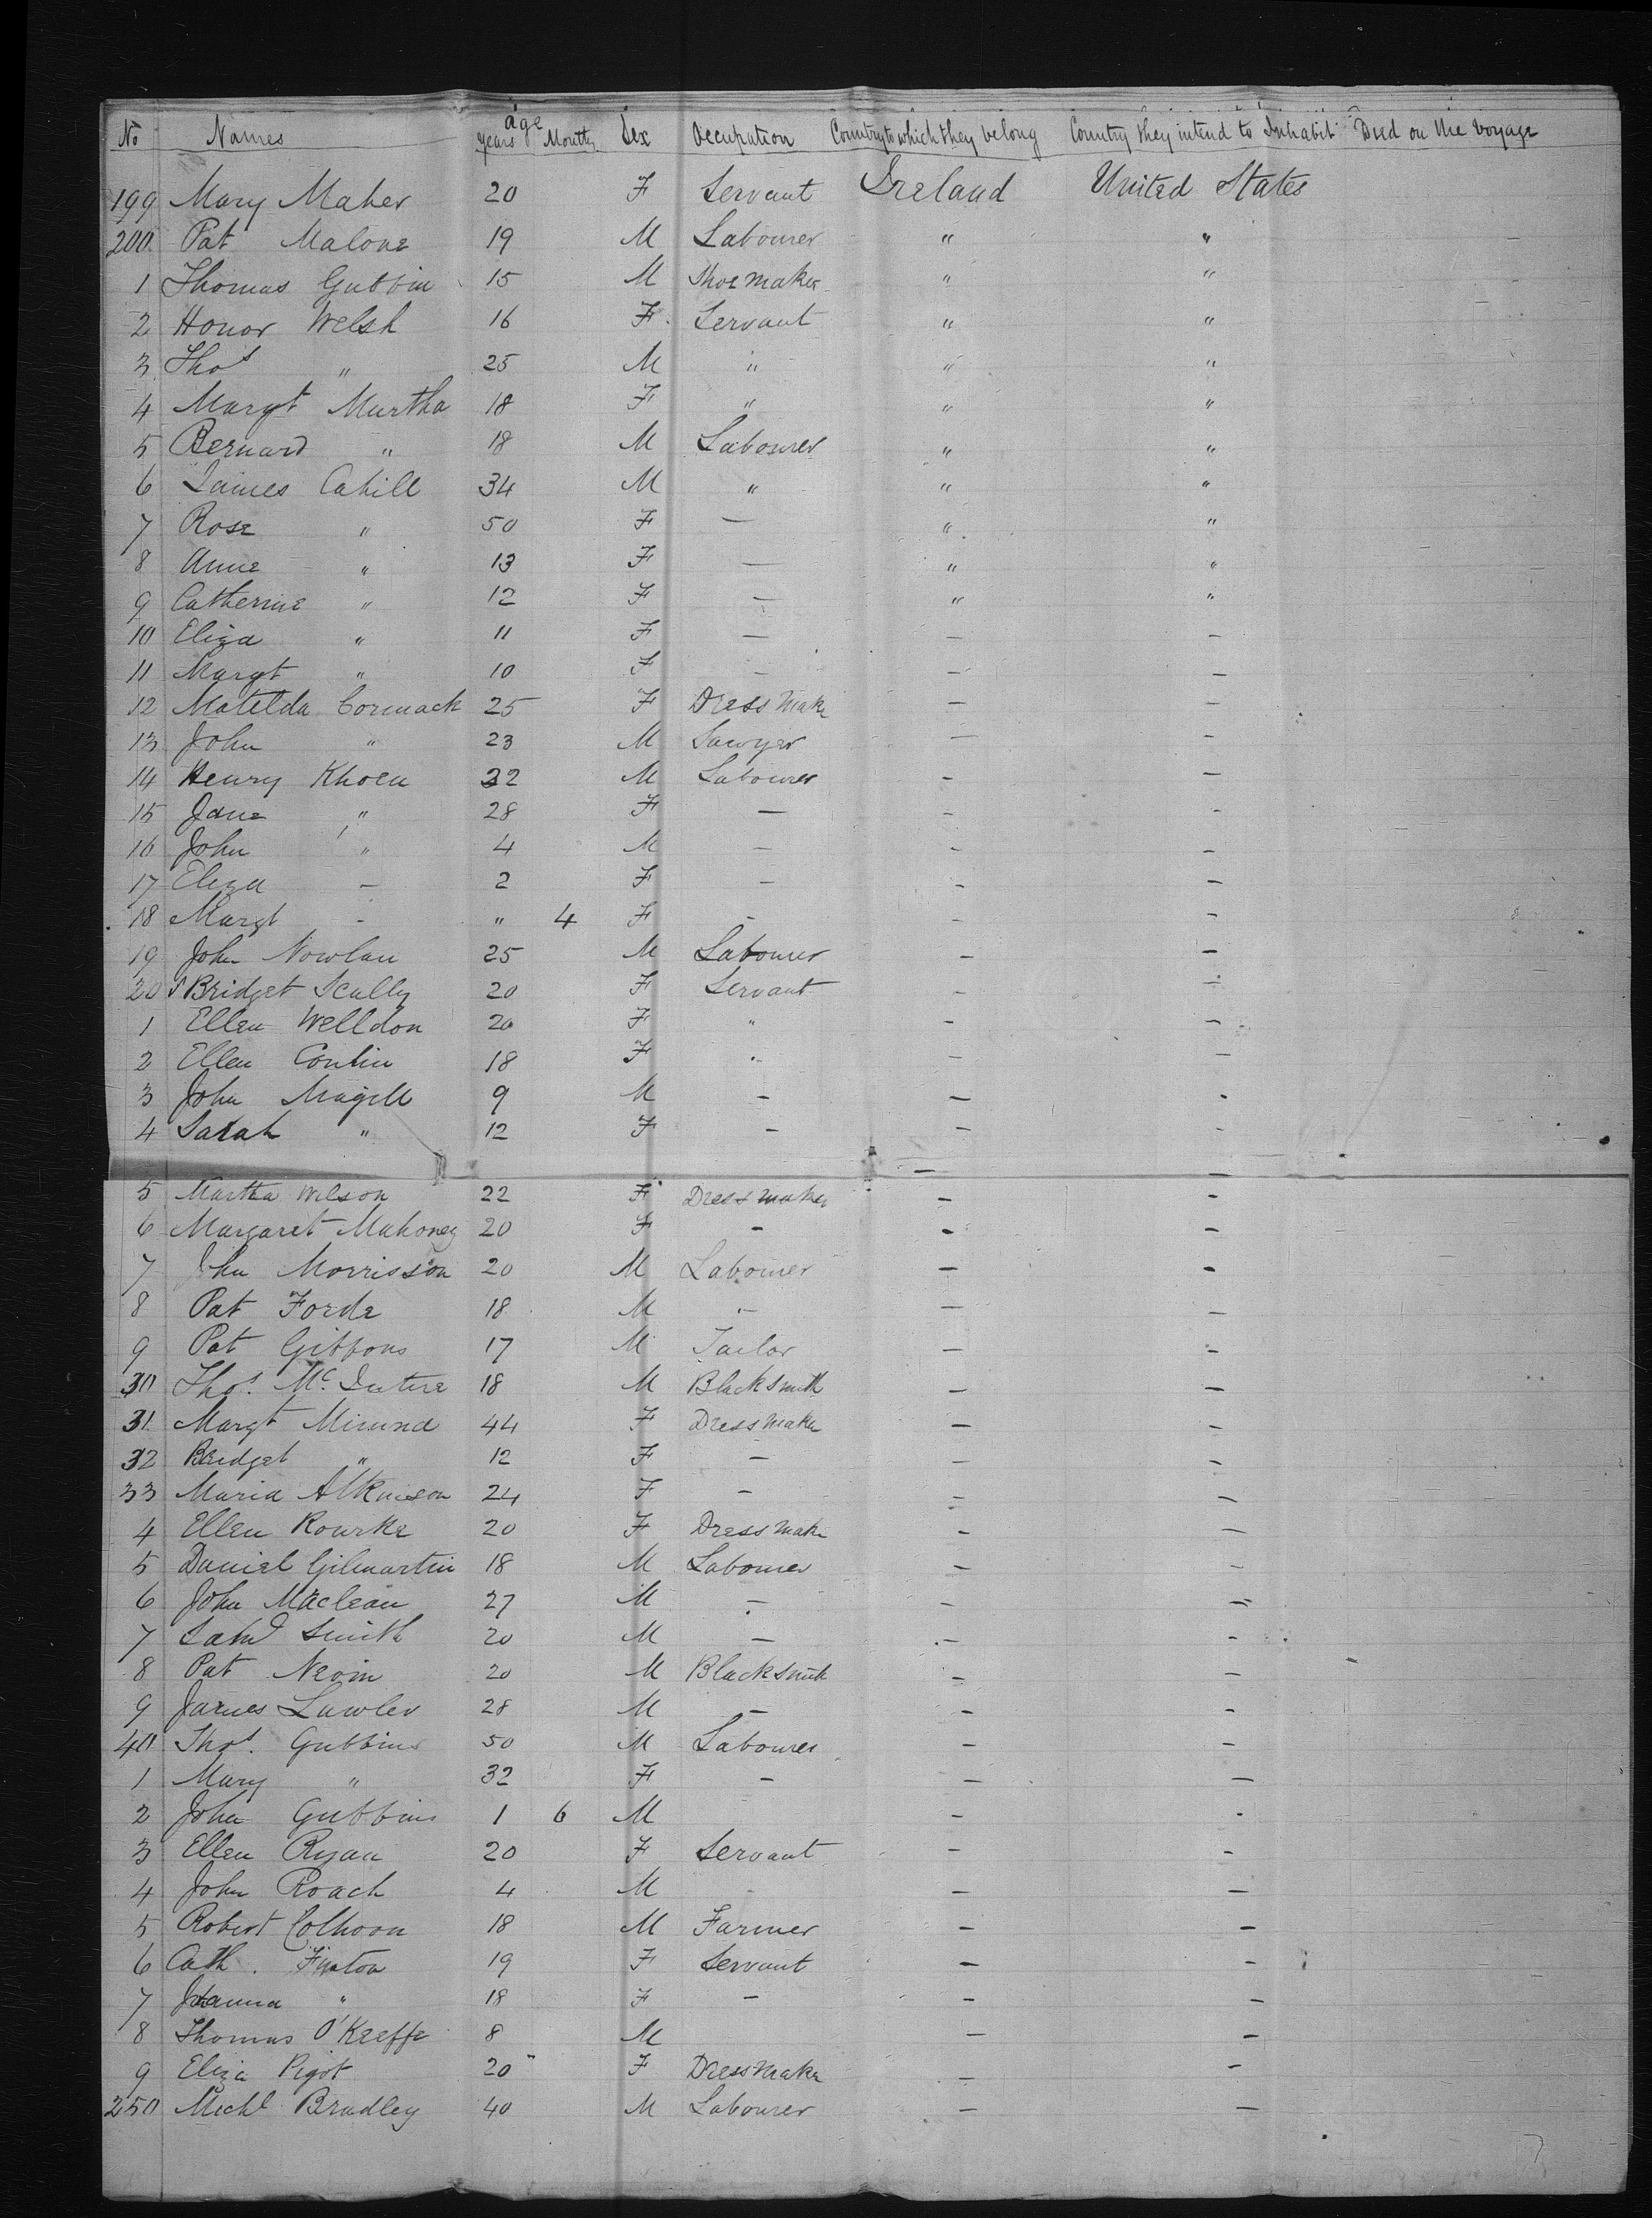 No Names age years Months Sex Occupation Country to which they belong Country they intend to Inhabit Died on the voyage
199 Mary Maher 20 F Servant Ireland United States
200 Pat Malone 19 M Labourer " "
1 Thomas Gubbin 15 M Shoemaker " "
2 Honor Welsh 16 F Servant " "
3 Thos " 25 M " " "
4 Margt Murtha 18 F " " "
5 Bernard " 18 M Labourer " "
6 James Cahill 34 M " " "
7 Rose " 50 F — " "
8 Anne " 13 F — " "
9 Catherine " 12 F — " "
10 Eliza " 11 F — — —
11 Margt " 10 F — — —
12 Matilda Cormack 25 F Dress Make — —
13 John " 23 M Sawyer — —
14 Henry Khoen 32 M Labourer — —
15 Jane " 28 F — — —
16 John " 4 M — — —
17 Eliza — 2 F — — —
18 Margt - " 4 F — — —
19 John Nowlan 25 M Labourer — —
20 Bridget Scully 20 F Servant — —
1 Ellen Welldon 20 F " — —
2 Ellen Conlin 18 F " — —
3 John Magill 9 M — — -
4 Sarah " 12 F — — -
— —
5 Martha Wilson 22 F Dressmaker — -
6 Margaret Mahoney 20 F — - —
7 John Morrisson 20 M Labourer — -
8 Pat Forde 18 M — — —
9 Pat Gibbons 17 M Tailor — —
30 Thos. Mc Intire 18 M Blacksmith — —
31 Margt 44 F Dressmaker — —
32 Bridget " 12 F — — —
33 Maria Atkinson 24 F — — —
4 Ellen Rourke 20 F Dressmake — —
5 Daniel Gilmartin 18 M Labourer — —
6 John Maclean 27 M — — —
7 Saml Smith 20 M — — —
8 Pat Nevin 20 M Blacksmith — —
9 James Lawler 28 M — — —
40 Thos. Gubbins 50 M Labourer — —
1 Mary " 32 F — — —
2 John Gubbins 1 6 M — -
3 Ellen Ryan 20 F Servant — —
4 John Roach 4 M - — —
5 Robert Colhoon 18 M Farmer — —
6 Cath. 19 F Servant — —
7 " 18 F — — —
8 Thomas O'Keeffe 8 M — —
9 Eliza Pigot 20 F Dressmaker — —
250 Michl Bradley 40 M Labourer — —